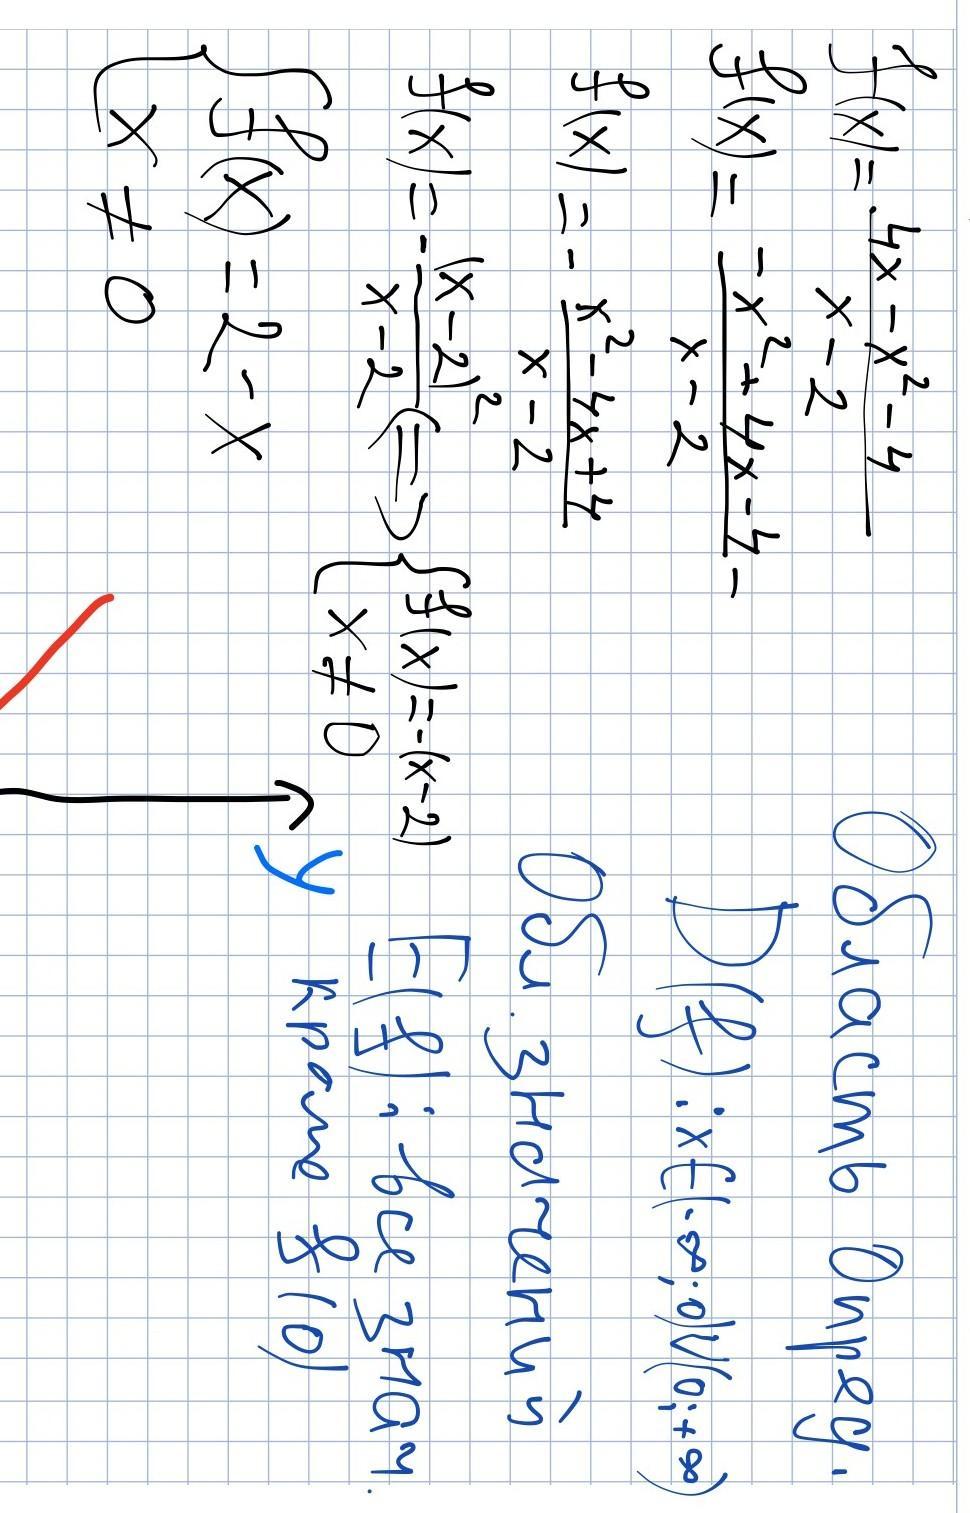 f(x) = (4x - x² - 4)/(x - 2)
f(x) = (-x² + 4x - 4)/(x - 2) -
f(x) = - (x² - 4x + 4)/(x - 2)
f(x) = - (x - 2)²/(x - 2) ⟺ { f(x) = -(x - 2)
x ≠ 0
{ f(x) = 2 - x
x ≠ 0
Область Опред.
D(f): x ∈ (-∞; 0) ∪ (0; +∞)
Обл. значений
E(f): все знач.
кроме f(0)
y